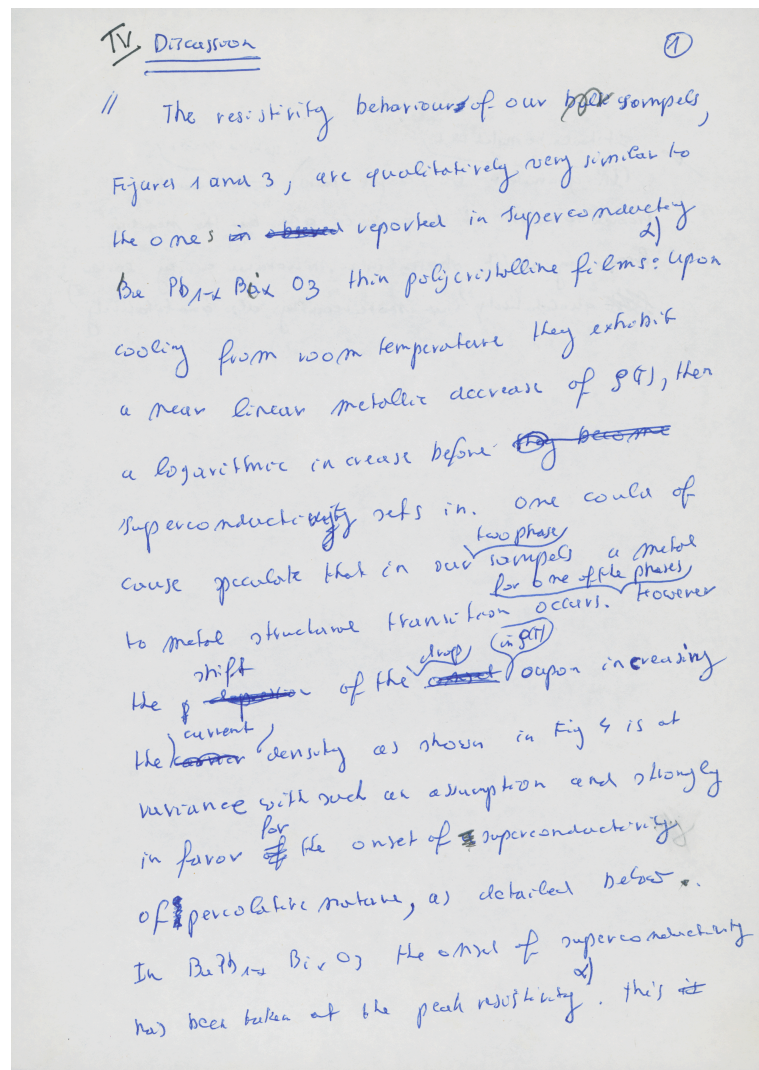 IV Discussion 1
// The resistivity behaviour of our sampels,
Figures 1 and 3, are qualitatively very similar to
the ones reported in superconducting
Ba Pb1-x Bix O3 thin polycristalline films: 2) Upon
cooling from room temperature they exhibit
a near linear metallic decrease of ρ(T), then
a logarithmic increase before they become
superconductivity sets in. One could of
two phase
couse speculate that in our sampels a metal
for one of the phases
to metal structural transition occurs. However
shift drop (in ρ(T))
the of the onset oupon increasing
current
the carrier density as shown in Fig 4 is at
variance with such an assumption and strongly
for
in favor of the onset of superconductivity
of percolative nature, as detailed below.
In BaPb1-x Bix O3 the onset of superconductivity
has been taken at the peak resistivity 2). this it